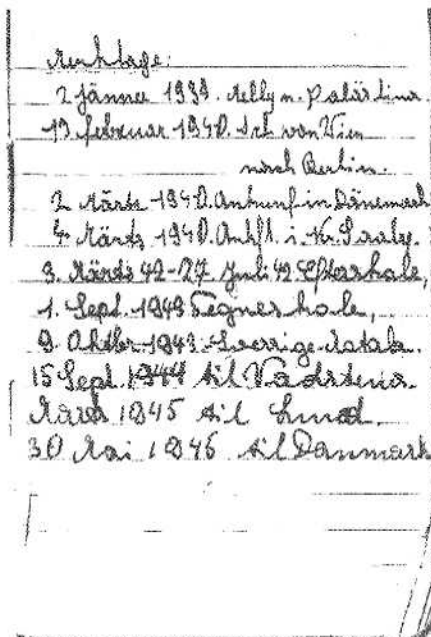 Merktage:
2 Jänner 1939. Nelly n. Palästina.
13 februar 1940. von Wien
nach Berlin.
2. Märtz 1940. Ankunf in Dänemark
4. Märtz 1940. Ankft. i. Kr.
3. Märtz 42-27 Juli 42 Efterskole,
1. Sept. 1943 Tegners hole,
9. Oktber 1943. Sverige.
15 Sept. 1944 til Vadstena.
1945 til Lund.
30 Mai 1945 til Danmark